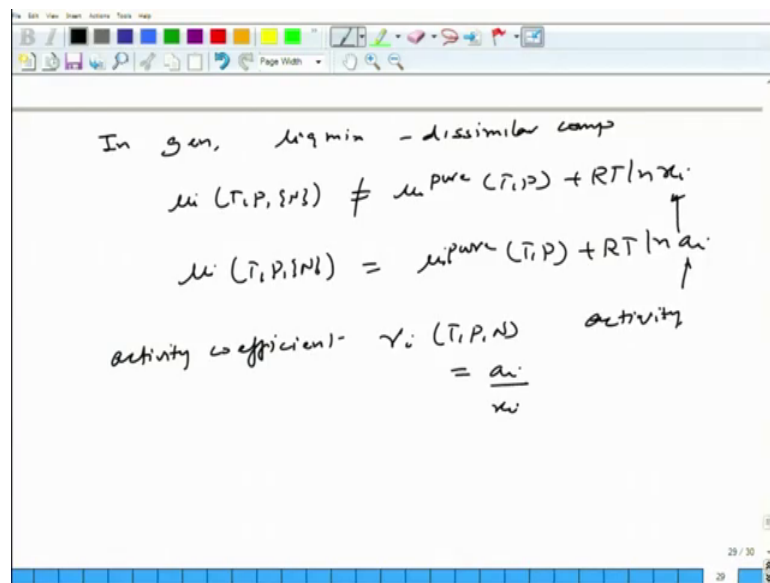 File Edit View Insert Actions Tools Help
B I
Page Width
In gen, liq mix - dissimilar comp
μi (T,P,{N}) ≠ μi pure (T,P) + RT ln xi
μi (T,P,{N}) = μi pure (T,P) + RT ln ai
activity
activity coefficient- γi (T,P,N)
= ai
xi
29 / 30
29